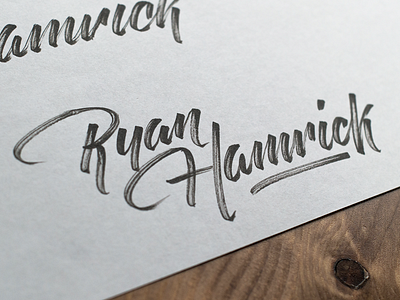 amrick
Ryan
Hamrick